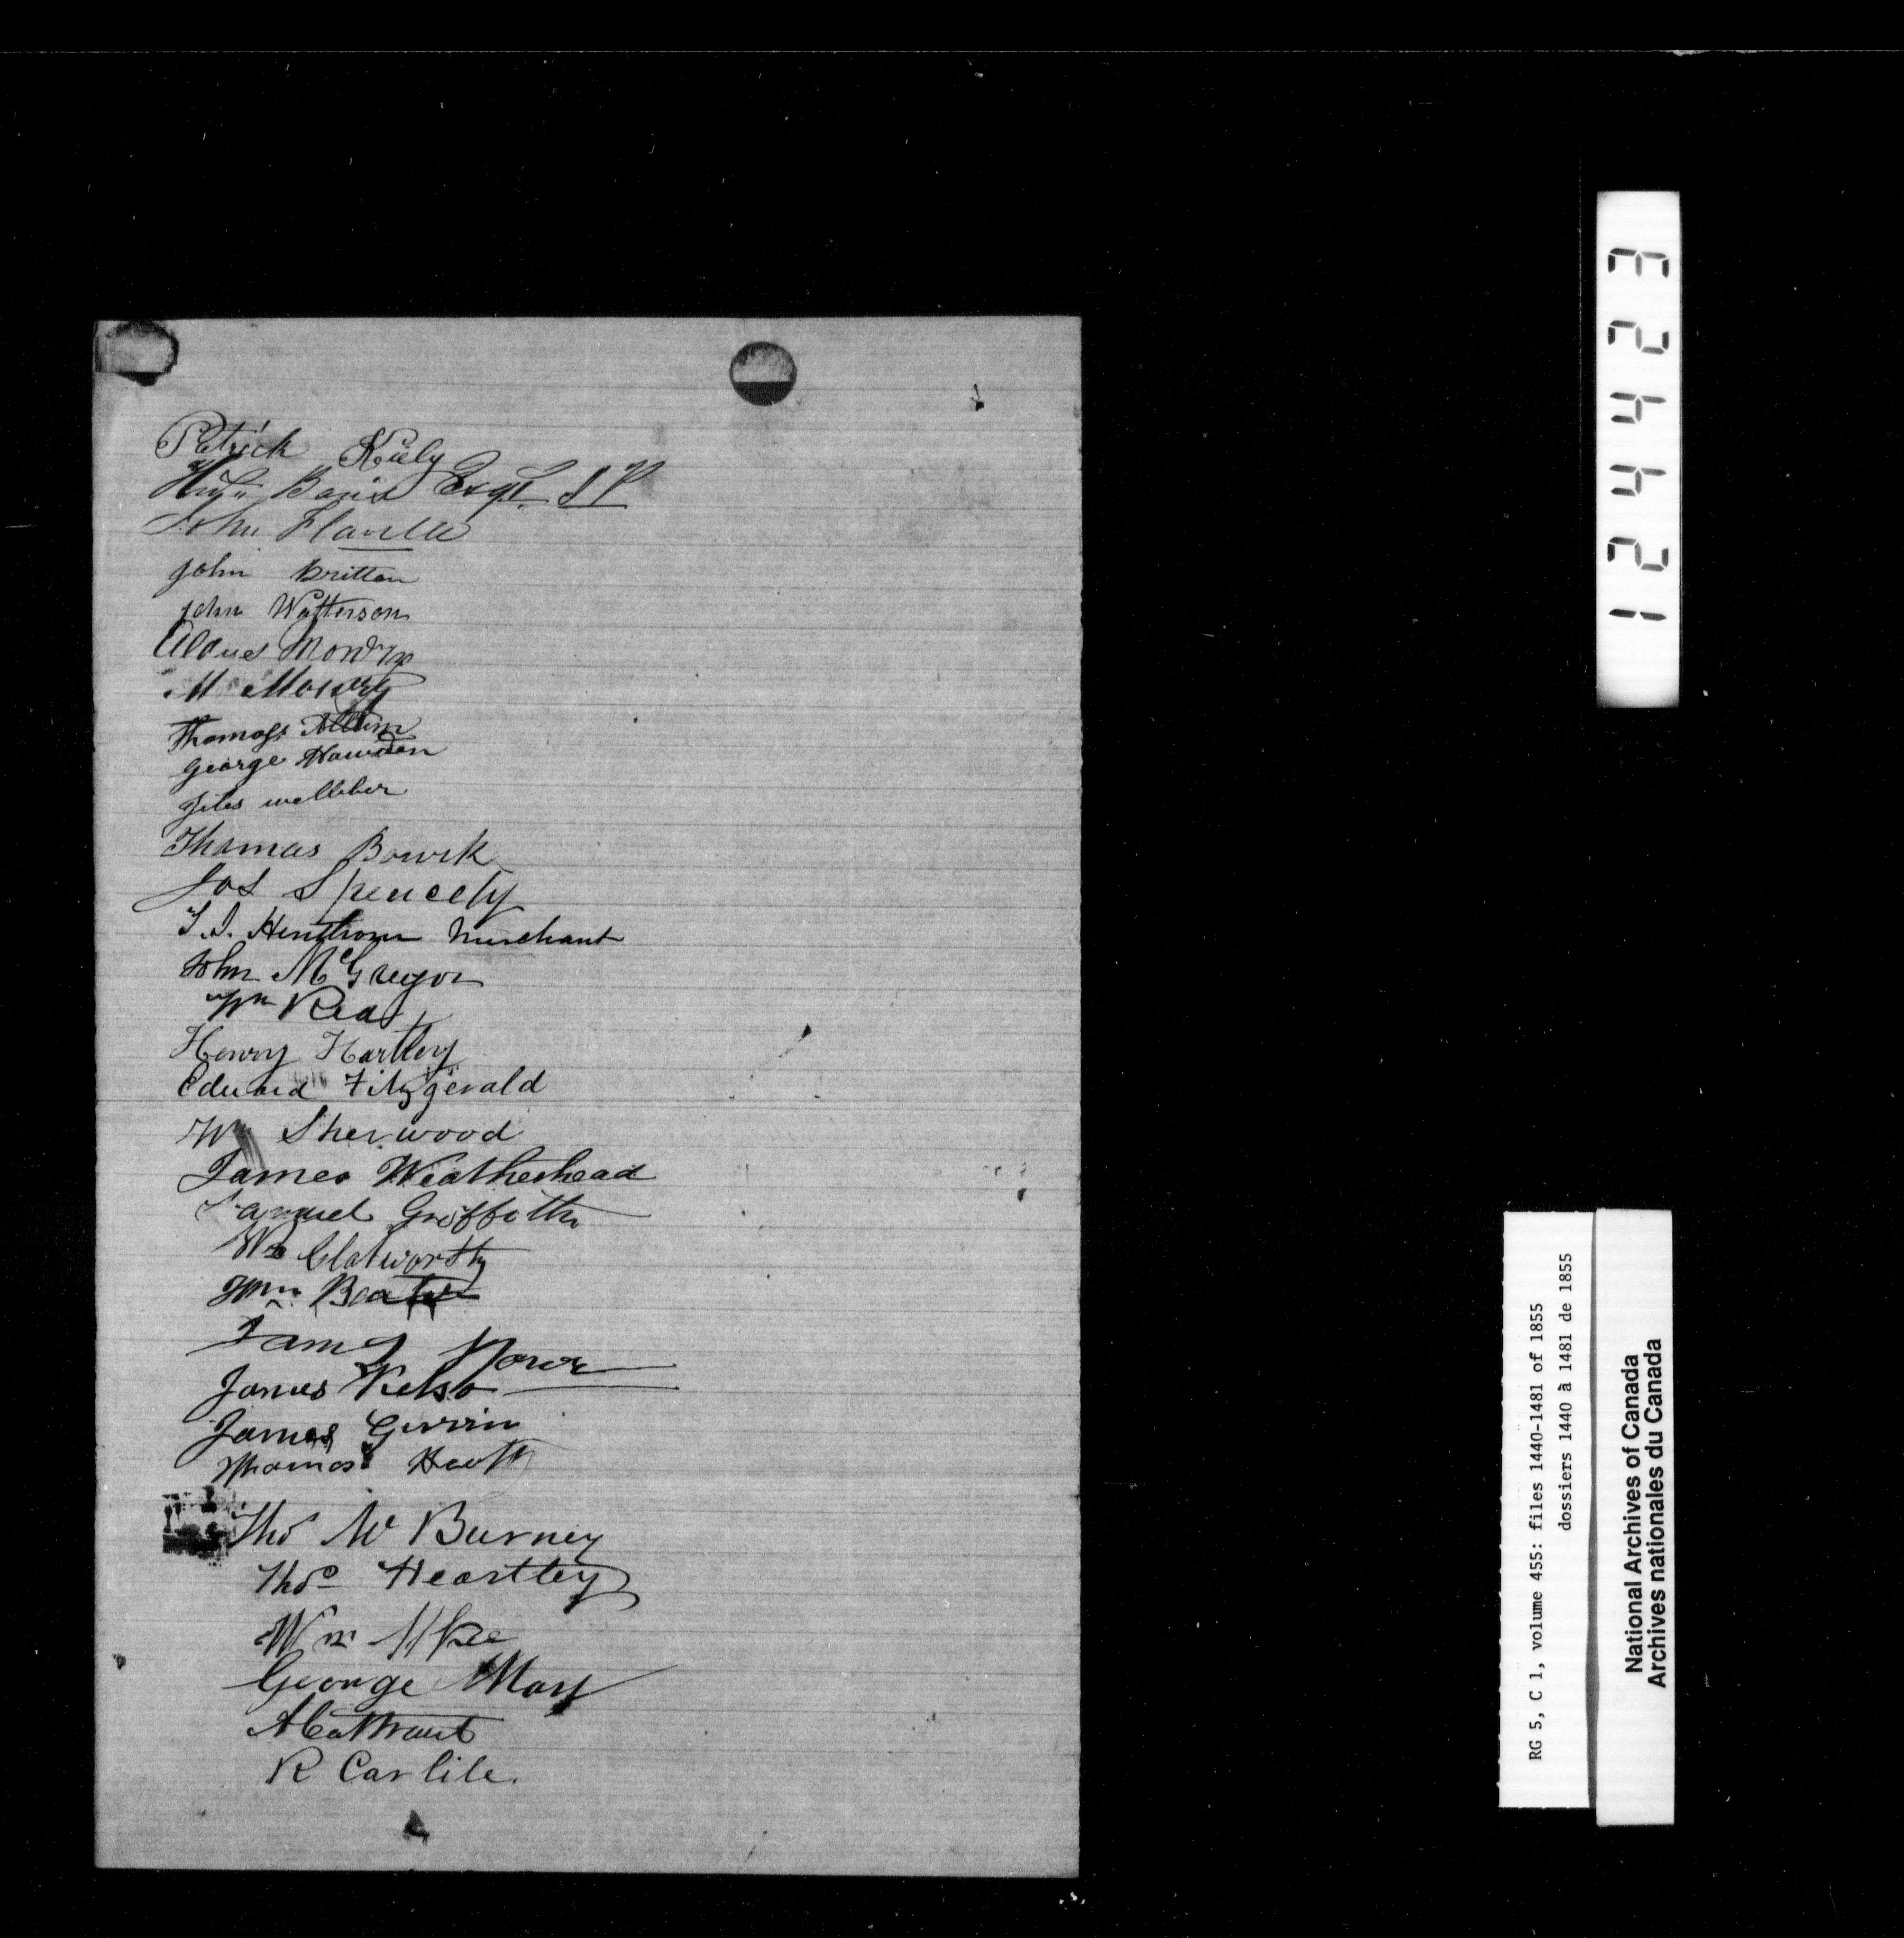 Patrick Kiely
Esqr. J P
John Flavelle
John Britton
John Watterson
Mowry
M Mowry
Thomass
George Hawden
Giles
Thomas Bowek
Jos Spencely
T. I. Henthorn Merchant
John McGregor
Wm Rea
Henry Hartley
Edward Fitzgerald
Wm Sherwood
James Weatherhead
Samuel Griffith
Wm Clatworthy
Wm Beatie
James
James Kelso
James Gerrin
Thomas
Thos Mc Burney
Thos Heartley
Wm
George May
R Carlile.
124423
RG 5, C 1, volume 455: files 1440-1481 of 1855
dossiers 1440 à 1481 de 1855
National Archives of Canada
Archives nationales du Canada